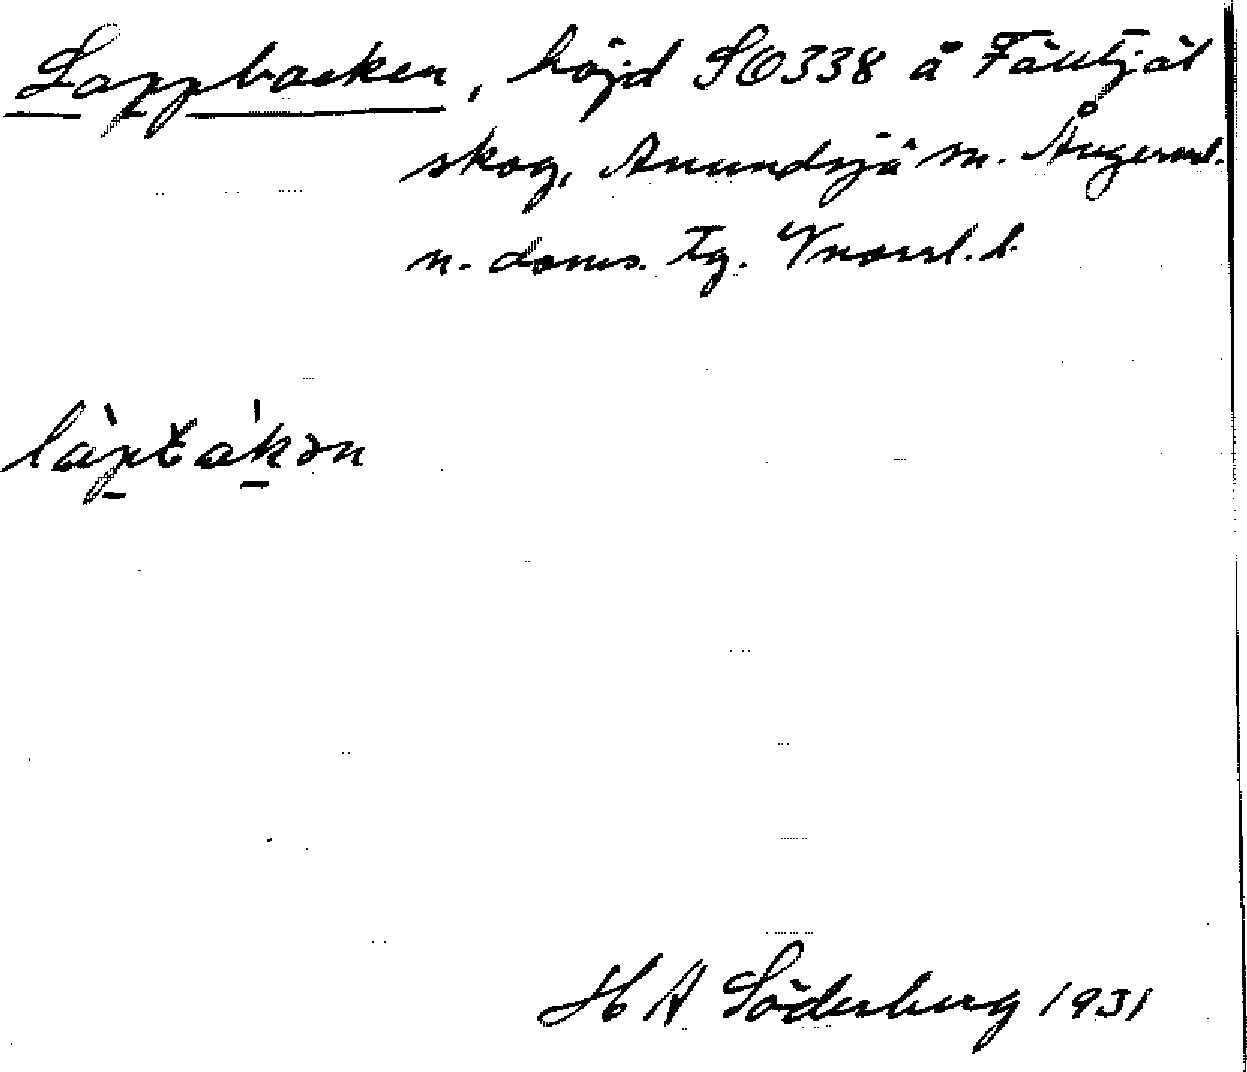 Lappbacken, höjd SO338 å Fälltjäl
skog, Anundsjö sn. Ångerml.
n. doms. tg. Vnorrl. l.
H A Söderberg 1931